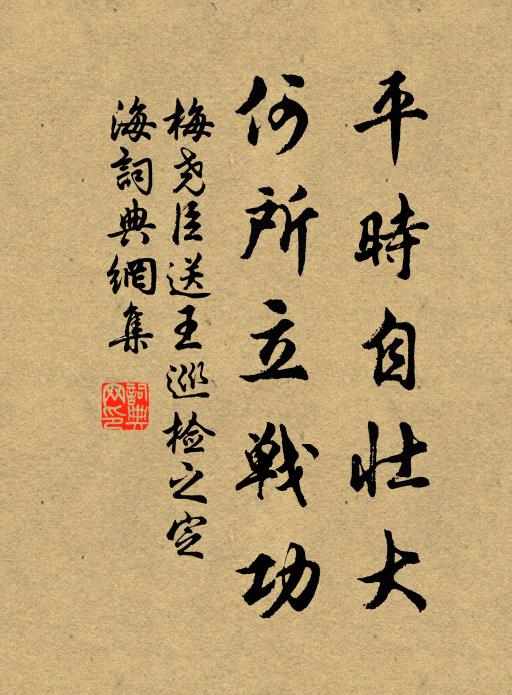 平時自壮大
何所立戰功
梅尧臣送王巡检之定
海詞典網集
詞典
网印